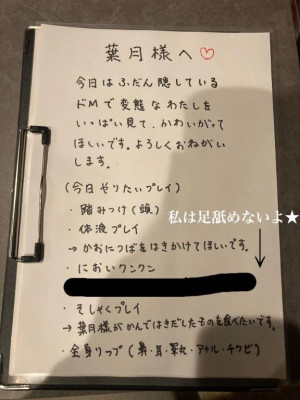 葉月様へ♡
今日はふだん隠している
ドMで変態なわたしを
いっぱい見て、かわいがって
ほしいです。よろしくおねがい
します。
(今日やりたいプレイ)
・踏みつけ(頭)
私は足舐めないよ★
・体液プレイ
→かおにつばをはきかけてほしいです。
・においクンクン
・そしゃくプレイ
→葉月様がかんではきだしたものを食べたいです。
・全身リップ(鼻・耳・睾丸・アナル・チクビ)